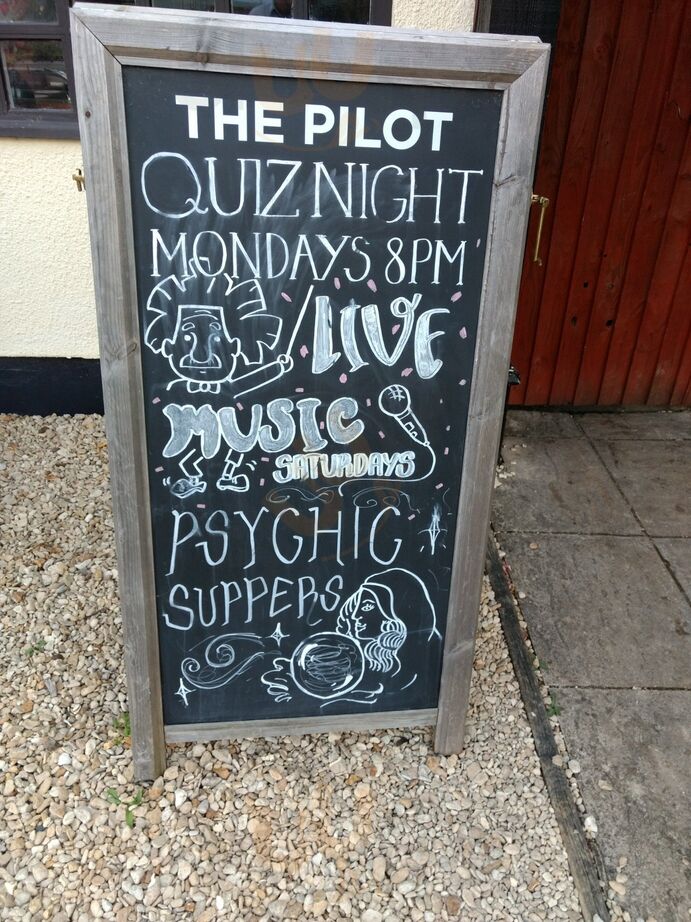 THE PILOT
QUIZ NIGHT
MONDAYS 8PM
LIVE
MUSIC
SATURDAYS
PSYCHIC
SUPPERS